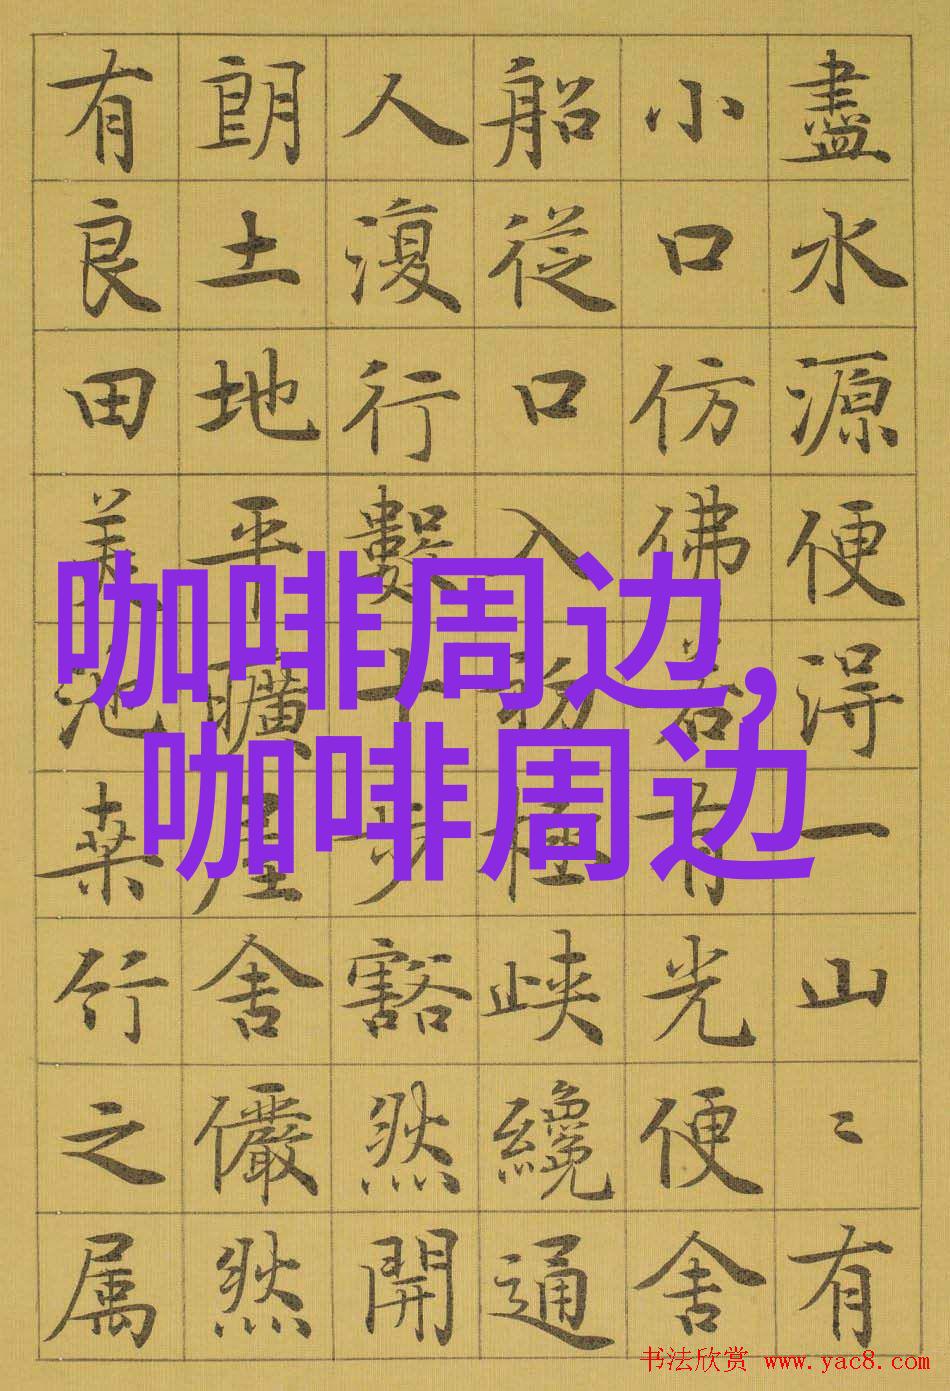 盡水源便得一山〻有
小口仿佛若有光便舍
船從口入初極峽纔通
人復行數十步豁然開
朗土地平曠屋舍儼然
有良田美池桒竹之属
咖啡周边,
咖啡周边
书法欣赏 www.yac8.com